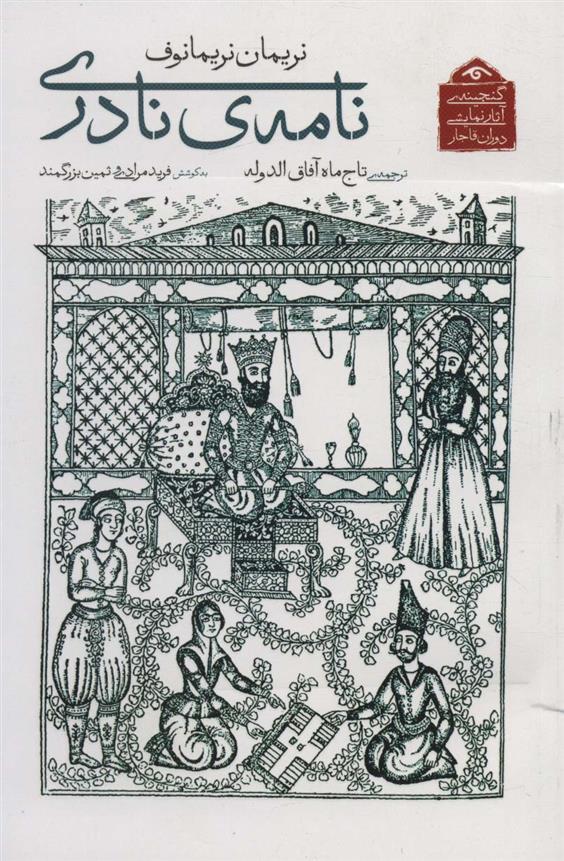 نریمان نریمانوف
نامه‌ی نادری
ترجمه‌ی تاج ماه آفاق الدوله
به کوشش فرید مرادی و ثمین بزرگمند
گنجینه‌ی
آثار نمایشی
دوران قاجار